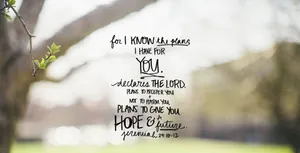 for I KNOW the plans
I HAVE FOR
YOU,
declares THE LORD.
PLANS TO PROSPER YOU
&
NOT TO HARM YOU,
PLANS TO GIVE YOU
HOPE & a
future.
jeremiah 29:10-12